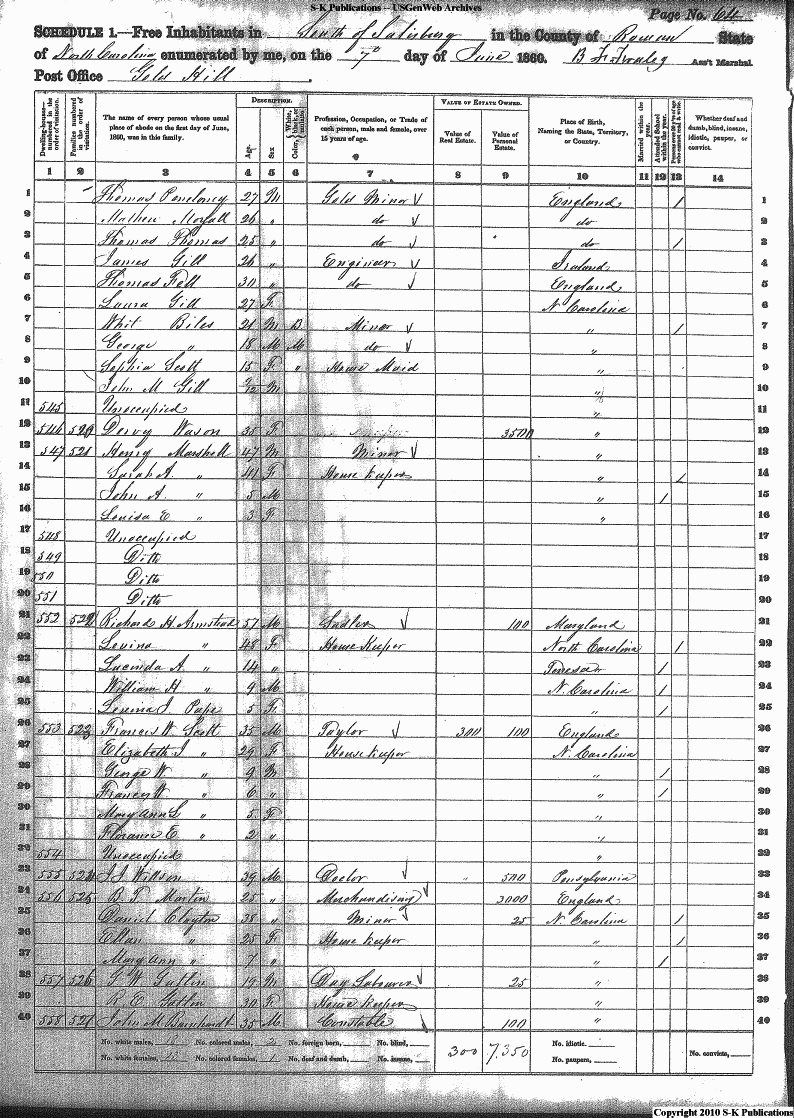 S-K Publications -- USGenWeb Archives
Page No. 64
SCHEDULE 1.—Free Inhabitants in South of Salisbury in the County of Rowan State
of North Carolina enumerated by me, on the 7th day of June 1860. Ass't Marshal.
Post Office Gold Hill
Dwelling-houses—numbered in the order of visitation.
Families numbered in the order of visitation.
The name of every person whose usual place of abode on the first day of June, 1860, was in this family.
DESCRIPTION.
Age.
Sex
Color, White, black, or mulatto.
Profession, Occupation, or Trade of each person, male and female, over 15 years of age.
VALUE OF ESTATE OWNED.
Value of Real Estate.
Value of Personal Estate.
Place of Birth, Naming the State, Territory, or Country.
Married within the year.
Attended School within the year.
Persons over 20 y'rs of age who cannot read & write.
Whether deaf and dumb, blind, insane, idiotic, pauper, or convict.
1 2 3 4 5 6 7 8 9 10 11 12 13 14
1 Thomas 27 M Gold Minor England / 1
2 Mathew 26 " do do 2
3 Thomas Thomas 25 " do do / 3
4 James Gill 26 " Engineer Ireland 4
5 Thomas Fell 30 " do England 5
6 Laura Gill 27 F N Carolina 6
7 Whit Biles 21 M B Minor " / 7
8 George " 18 M M do " 8
9 Sophia Scott 15 F " House Maid " 9
10 John M Gill M " 10
11 545 Unoccupied " 11
12 546 520 Wason 35 F 3500 " 12
13 547 521 Henry Marshell 47 M Minor " 13
14 Sarah A. " 41 F House Keeper " / 14
15 John A " 5 M " / 15
16 Louisa E " 3 F " 16
17 548 Unoccupied 17
18 549 Ditto 18
19 550 Ditto 19
20 551 Ditto 20
21 552 522 Richard H Armstead 57 M 100 Maryland 21
22 Levina " 48 F House Keeper North Carolina / 22
23 Lucinda A " 14 " / 23
24 William H " 9 M N. Carolina / 24
25 Levina J. Pape 5 F " / 25
26 553 523 Frances W Scott 35 M Taylor 300 100 England 26
27 Elizabeth J " 29 F House Keeper N. Carolina 27
28 George W " 9 M " / 28
29 Frances W " 6 " " / 29
30 Mary Ann L " 5 F " 30
31 Florance E " 2 " " 31
32 554 Unoccupied " 32
33 555 524 J. J. Willson 39 M Doctor " 500 Pensylvania 33
34 556 525 B. F. Martin 25 " Merchandising 3000 England 34
35 Daniel Clayton 38 " Minor 25 N. Carolina / 35
36 Ellan " 25 F House Keeper " / 36
37 Mary Ann " 7 " " / 37
38 557 526 G W Gatlin 19 M Day Labourer 25 " 38
39 R. E. Gatlin 30 F House Keeper " 39
40 558 527 John M Barnhardt 35 M Constable 100 " 40
No. white males, No. colored males, 2 No. foreign born, No. blind, 300 7,350 No. idiotic.
No. white females, No. colored females, 1 No. deaf and dumb, No. insane, No. paupers, No. convicts,
Copyright 2010 S-K Publications